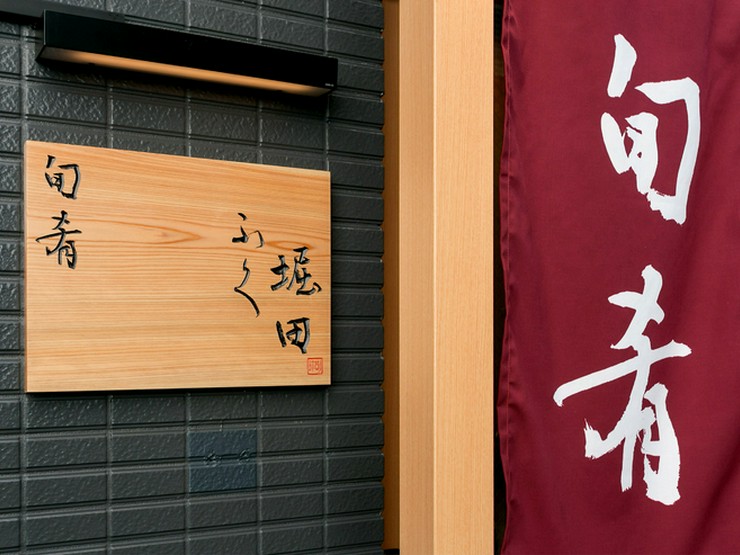 旬肴
ふく
堀田
旬肴